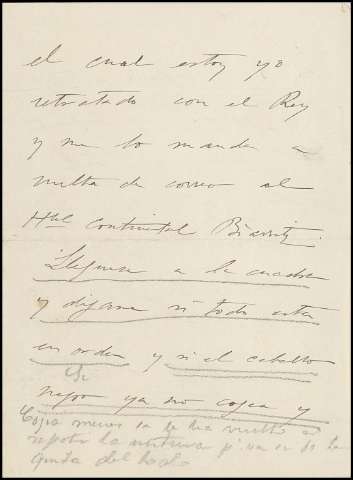 el cual estoy yo
retratado con el Rey
y me lo manda a
vuelta de correo al
Htel Continental Biarritz.
Lleguese a la cuadra
y digame si todo esta
en orden y si el caballo
negro ya no cojea y
Cojea menos se le ha vuelto a
la
del lado